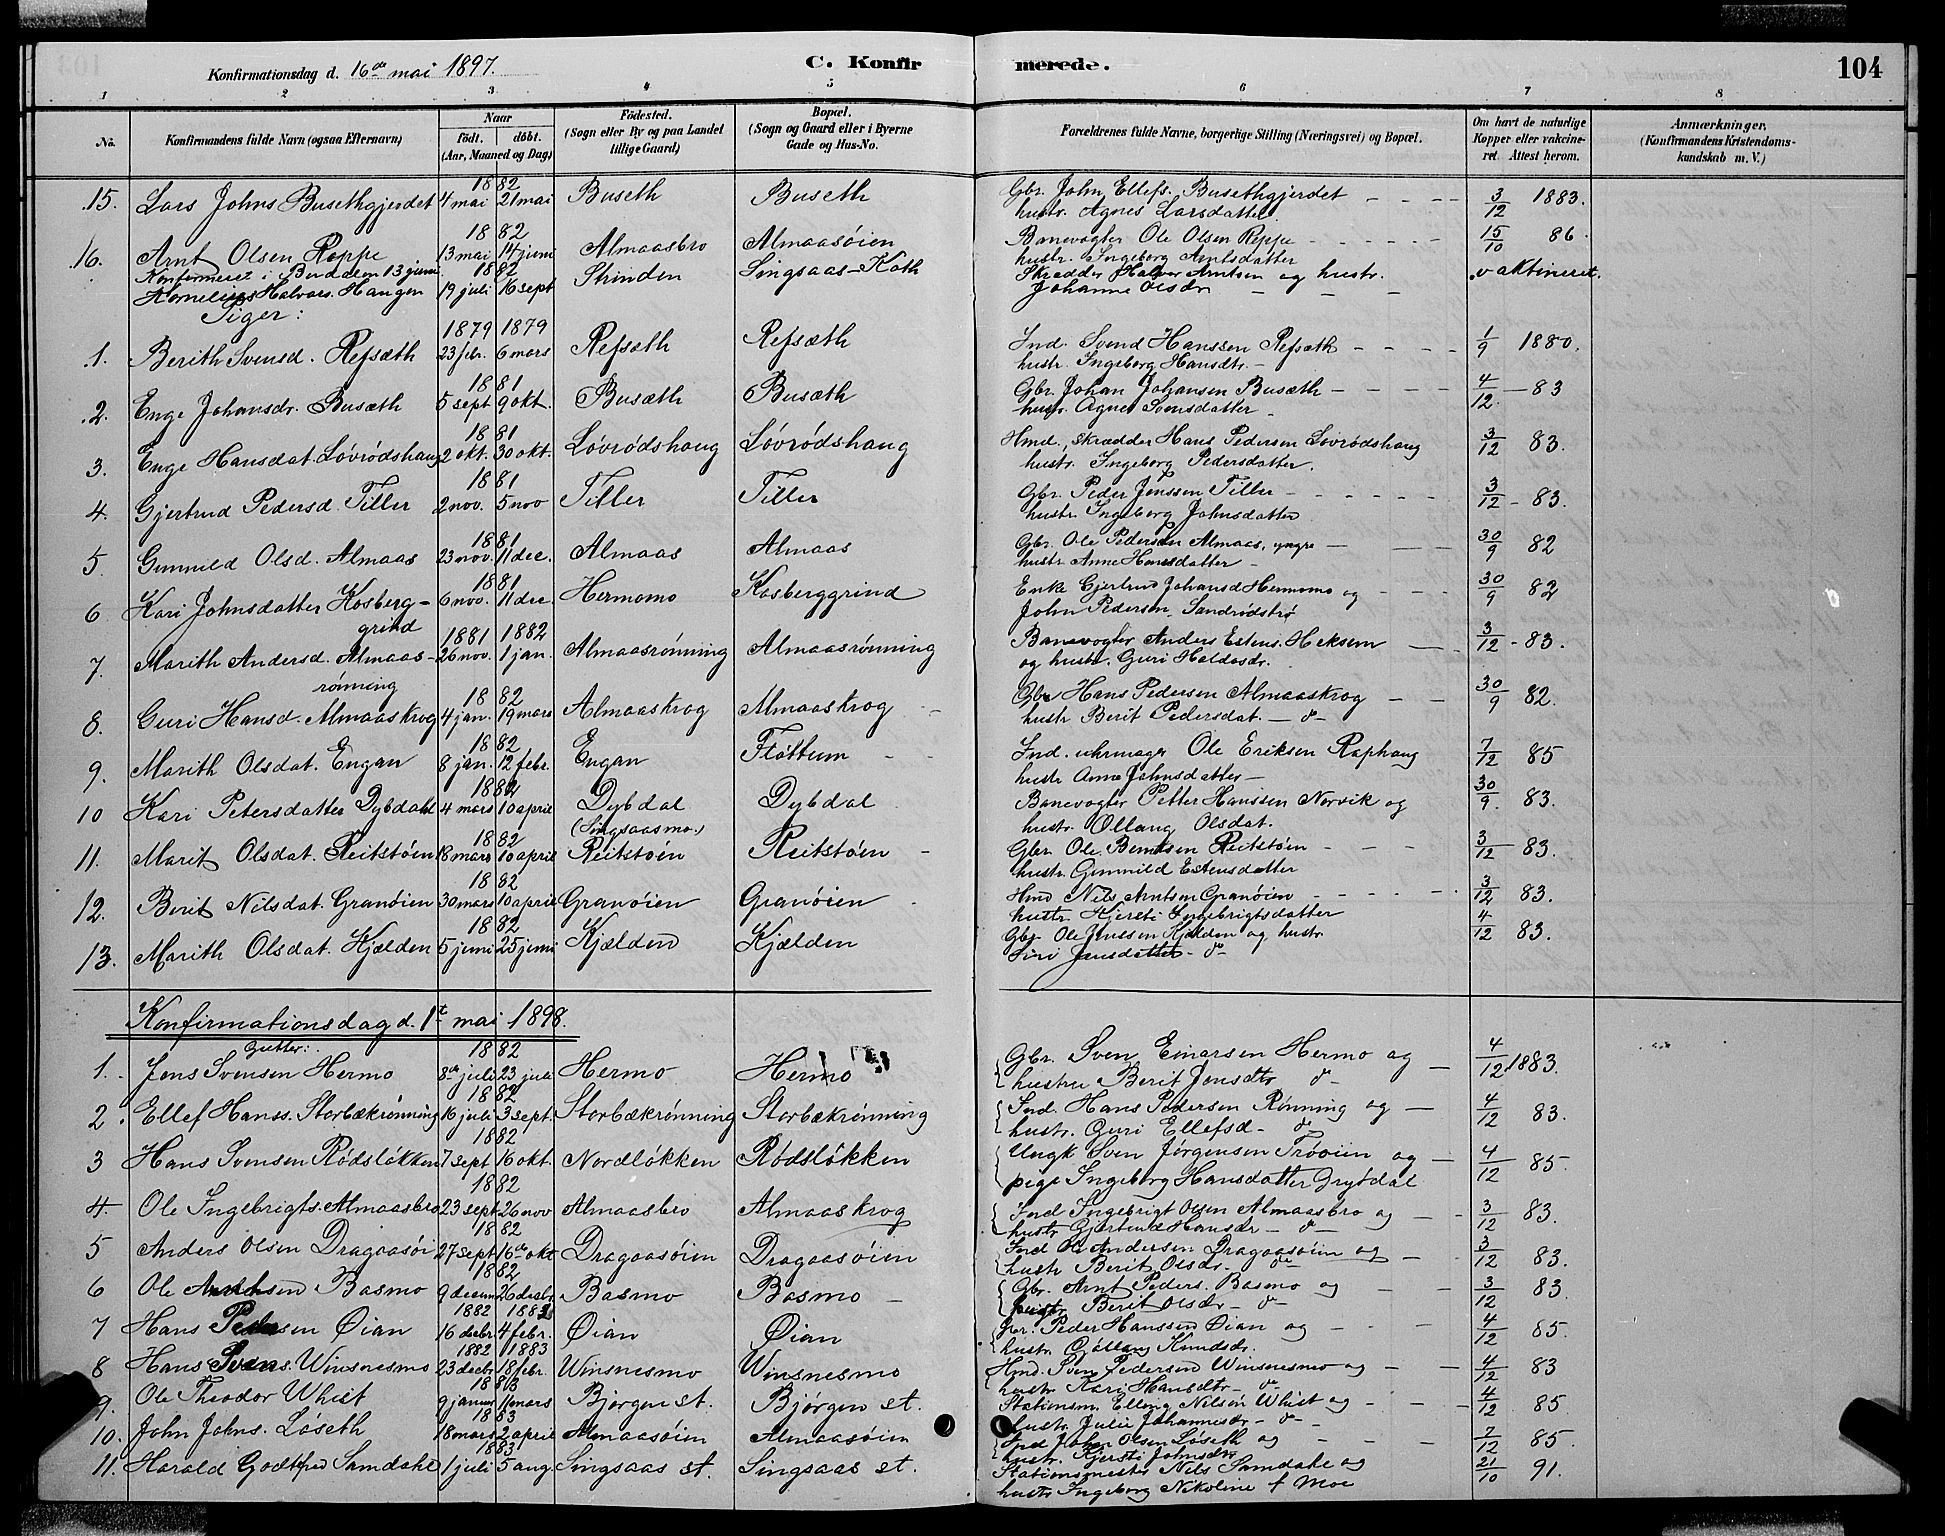 Konfirmationsdag d. 16de mai 1897.
C. Konfirmerede.
104
1 2 3 4 5 6 7 8
No.
Konfirmandens fulde Navn (ogsaa Efternavn)
Naar
født. døbt.
(Aar, Maaned og Dag)
Fødested.
(Sogn eller By og paa Landet
tillige Gaard)
Bopæl.
(Sogn og Gaard eller i Byerne
Gade og Hus-No.
Forældrenes fulde Navne, borgerlige Stilling (Næringsvei) og Bopæl.
Om havt de naturlige
Kopper eller vakcine-
ret. Attest herom.
Anmærkninger.
(Konfirmandens Kristendoms-
kundskab m. V.)
1882
15. Lars Johns Busethgjerdet 4 mai 21 mai Buseth Buseth Gbr. John Ellefs. Busethgjerdet 3/12 1883.
hustr. Agnes Larsdatter
1882
16. Arnt Olsen Reppe 13 mai 14 juni Almaasbro Almaasøien Banevogter Ole Olsen Reppe 15/10 86.
hustr. Ingeborg Arntsdatter
Konfirmeret i Budalen 13 juni 1882
Kornelius Halvors. Haugen 19 juli 16 sept Strinden Singsaas-Koth Skrædder Halvor Arntsen og hustr. vaktineret.
Johanne Olsdr
Piger:
1879 1879
1. Berith Svensd. Refsæth 23 febr. 6 mars Refsæth Refsæth Ind. Svend Hanssen Refsæth 1/9 1880.
hustr. Ingeborg Hansdtr.
1881
2. Enge Johansdr. Busæth 5 sept 9 okt. Busæth Busæth Gbr. Johan Johansen Busæth 4/12 83
hustr. Agnes Svensdatter
1881
3. Enge Hansdat. Løvrødshaug 2 okt. 30 okt. Løvrødshaug Løvrødshaug Hmd. skrædder Hans Pedersen Løvrødshaug 3/12 83.
hustr. Ingeborg Pedersdatter.
1881
4. Gjertrud Pedersd Tiller 2 nov. 5 nov Tiller Tiller Gbr. Peder Jonssen Tiller 3/12 83.
hustr. Ingeborg Johnsdatter
1881
5. Gunnild Olsd. Almaas 23 nov. 11 dec. Almaas Almaas Gbr. Ole Pedersen Almaas, yngre 30/9 82
hustr. Anne Hansdatter
1881
6 Kari Johnsdatter Kosberg- 6 nov. 11 dec. Hermomo Kosberggrind Enke Gjertrud Johansd Hermomo og 30/9 82
grind John Pedersen Sandrødstrø
1881 1882
7. Marith Andersd. Almaas- 26 nov. 1 jan. Almaasrønning Almaasrønning Banevogter Anders Estens. Heksem 3/12 83.
rønning og hustr. Guri Haldosdr.
1882
8. Guri Hansd. Almaaskrog 4 jan. 19 mars Almaaskrog Almaaskrog Gbr Hans Pedersen Almaaskrog 30/9 82.
hustr Berit Pedersdat. do
1882
9. Marith Olsdat. Engan 8 jan. 12 febr. Engan Fløttum Ind. uhrmager Ole Eriksen Raphaug 7/12 85
hustr Anne Johnsdatter
1882
10 Kari Petersdatter Dybdahl 4 mars 10 april Dybdal Dybdal Banevogter Petter Hanssen Norvik og 30/9. 83.
(Singsaasmo.) hustr. Ollaug Olsdat.
1882
11. Marit Olsdat. Reitstøen 18 mars 10 april Reitstøen Reitstøen Gbr. Ole Berntsen Reitstøen 3/12 83.
hustr. Gunnild Estensdatter
1882
12. Berit Nilsdat. Granøien 30 mars 10 april Granøien Granøien Hmd Nils Arntsen Granøien 3/12 83.
hustr. Kjersti Ingebrigtsdatter
1882
13. Marith Olsdat. Kjælden 5 juni 25 juni Kjælden Kjælden Gbr. Ole Jensen Kjælden og hustr 4/12 83.
Siri Jensdatter do
Konfirmationsdag d. 1st mai 1898.
Gutter:
1882
1. Jens Svensen Hermo 8de juli 23 juli Hermo Hermo Gbr. Sven Einarsen Hermo og 4/12 1883.
hustru Berit Jensdtr do
1882
2. Ellef Hanss. Storbækrønning 16 juli 3 sept. Storbækrønning Storbækrønning Ind. Hans Pedersen Rønning og 4/12 83.
hustr. Guri Ellefsd do
1882
3 Hans Svensen Rødsløkken 7 sept 16 okt. Nordløkken Rødsløkken Ungk Sven Jørgensen Trøoien og 4/12 85.
pige Ingeborg Hansdatter Drydal
1882
4 Ole Ingebrigts. Almaasbro 23 sept. 26 nov Almaasbro Almaaskrog Ind Ingebrigt Olsen Almaasbro og 3/12 83.
hustr Gjertrud Hansdr do
1882
5 Anders Olsen Dragaasøi 27 sept. 16de okt. Dragaasøien Dragaasøien Ind Ole Andersen Dragaasøien og 3/12 83.
hustr Berit Olsdr. do
1882
6 Ole Arntsen Basmo 9 decem 26 decbr. Basmo Basmo Gbr. Arnt Peders. Basmo og 3/12 83.
hustr Berit Olsdr do
1882 1883
7 Hans Pedersen Øian 16 decbr. 4 febr. Øian Øian Gbr. Peder Hanssen Øian og 4/12 85.
hustr. Gollaug Knudsdr.
1882 1883
8 Hans Svens. Winsnesmo 23 decbr. 18 febr. Winsnesmo Winsnesmo Hmd. Sven Pedersen Winsnesmo og 4/12 83
hustr Kari Hansdtr do
1883
9. Ole Theodor Whist 9 januar 11 mars Bjørgen st. Bjørgen st. Stationsm. Elling Nilsen Whist og 4/12 85
hustr. Julie Johannesdr do
1883
10. John Johns. Løseth 18 mars 2 april Almaasøien Almaasøien Ind John Olsen Løseth og 7/12 85.
hustr. Kjersti Johnsdtr
1883
11. Harald Godtfred Samdahl 1 juli 5 aug. Singsaas st. Singsaas st. Stationsmester Nils Samdahl og 21/10 91.
hustr Ingeborg Nikoline f Moe